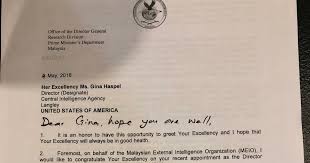 Office of the Director General
Research Division
Prime Minister's Department
Malaysia
May, 2018
Her Excellency Ms. Gina Haspel
Director (Designate)
Central Intelligence Agency
Langley
UNITED STATES OF AMERICA
Dear Gina, hope you are well,
1. It is an honor to have this opportunity to greet Your Excellency and I hope that
Your Excellency will always be in good health.
2. Foremost, on behalf of the Malaysian External Intelligence Organization (MEIO), I
would like to congratulate Your Excellency on your recent appointment as the Director